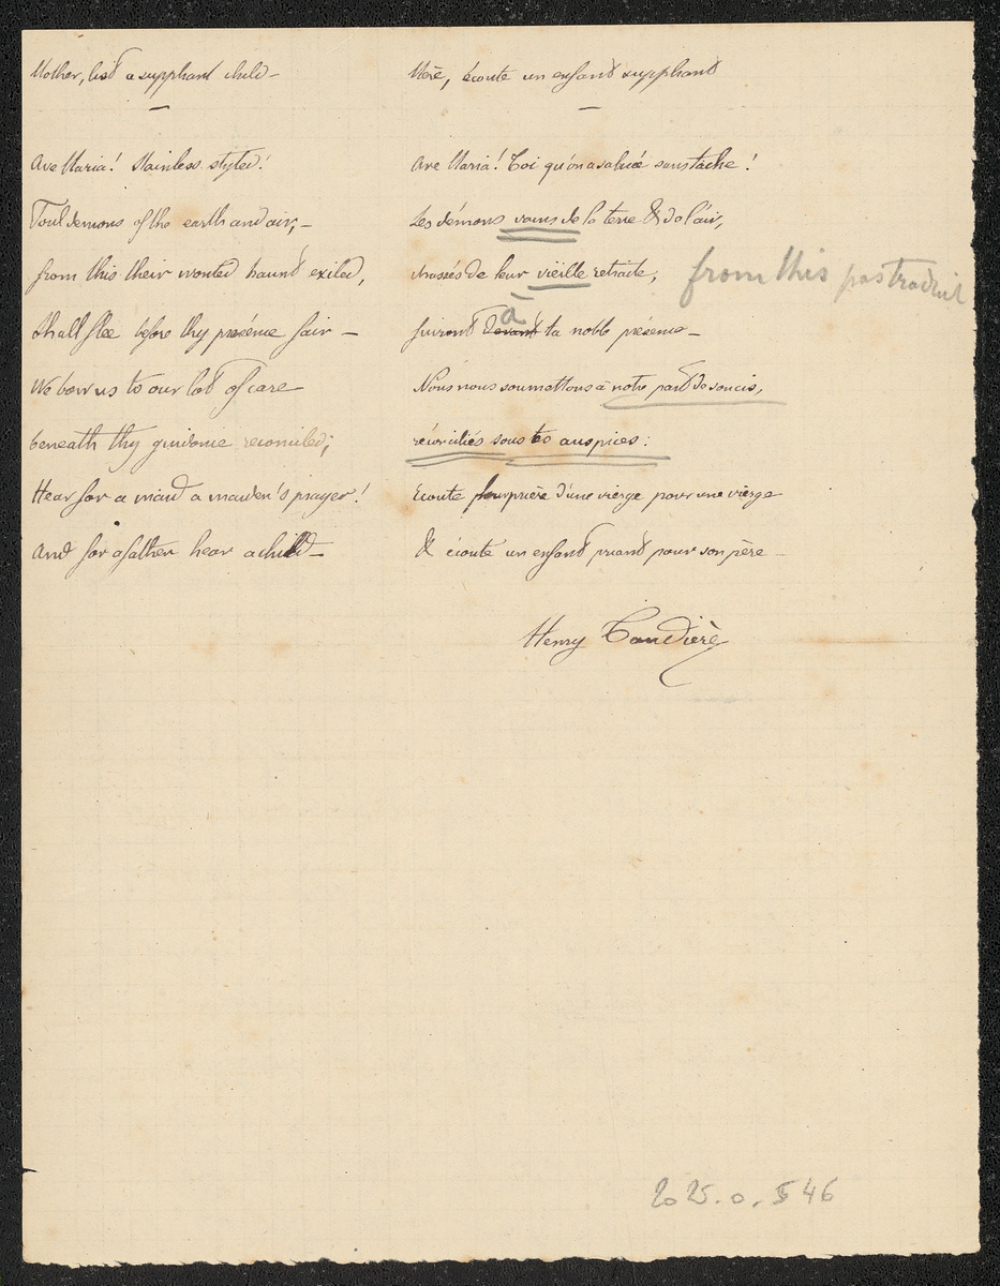 Mother, list a suppliant child –
Ave Maria! Stainless styled!
Foul demons of the earth and air, –
from this their wonted haunt exiled,
Shall flee before thy présence fair –
We bow us to our lot of care
beneath thy guidance reconciled;
Hear for a maid a maiden's prayer!
And for a father hear a child –
Mère, écoute un enfant suppliant
Ave Maria! Toi qu'on a saluée sans tache!
Les démons vains de la terre & de l'air,
chassés de leur vieille retraite,
from this pas traduit
à
fuiront devant ta noble présence –
Nous nous soumettons à notre part de soucis,
réconciliés sous tes auspices:
Ecoute prière d'une vierge pour une vierge
& écoute un enfant priant pour son père –
Henry
2025.0.546